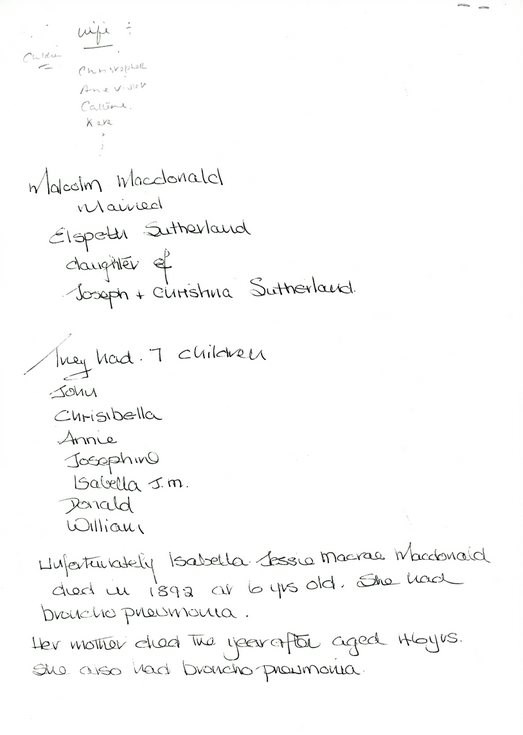 wife :
Children
Christopher
Catherine
Kate
Malcolm Macdonald
Married
Elspeth Sutherland
daughter of
Joseph + Christina Sutherland.
They had. 7 children
John
Chrisibella
Annie
Josephine
Isabella J.M.
Donald
William
Unfortunately Isabella Jessie Macrae Macdonald
died in 1892 at 6 yrs old. She had
broncho pneumonia.
Her mother died the year after aged 46yrs.
She also had broncho-pneumonia.